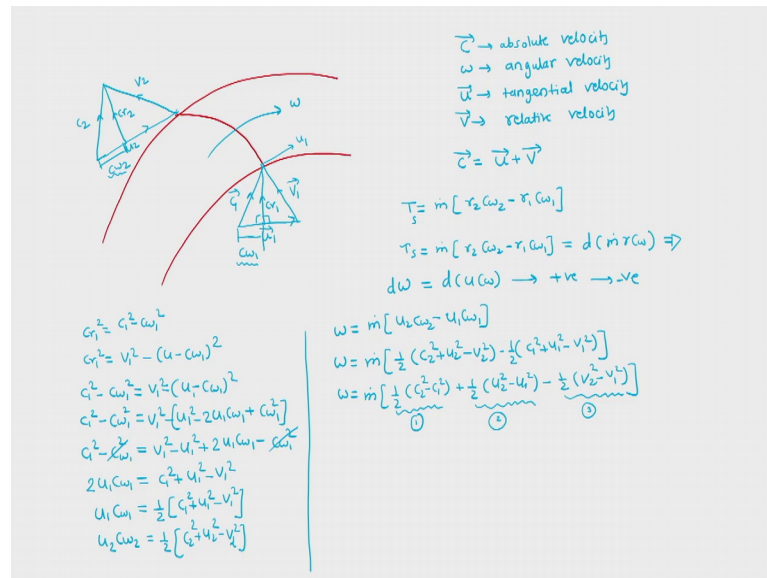 C⃗ → absolute velocity
ω → angular velocity
u⃗ → tangential velocity
V⃗ → relative velocity
C⃗ = u⃗ + V⃗
τs = ṁ[r₂Cω₂ - r₁Cω₁]
τs = ṁ[r₂Cω₂ - r₁Cω₁] = d(ṁrCω) ⇒
dω = d(uCω) → +ve → -ve
V₂
C₂
Cr₂
u₂
Cω₂
ω
u₁
C⃗₁
Cr₁
V⃗₁
u⃗₁
Cω₁
Cr₁² = C₁² - Cω₁²
Cr₁² = V₁² - (u - Cω₁)²
C₁² - Cω₁² = V₁² - (u₁ - Cω₁)²
C₁² - Cω₁² = V₁² - [u₁² - 2u₁Cω₁ + Cω₁²]
C₁² - Cω₁² = V₁² - u₁² + 2u₁Cω₁ - Cω₁²
2u₁Cω₁ = C₁² + u₁² - V₁²
u₁Cω₁ = ½[C₁² + u₁² - V₁²]
u₂Cω₂ = ½[C₂² + u₂² - V₂²]
ω = ṁ[u₂Cω₂ - u₁Cω₁]
ω = ṁ[½(C₂² + u₂² - V₂²) - ½(C₁² + u₁² - V₁²)]
ω = ṁ[½(C₂² - C₁²) + ½(u₂² - u₁²) - ½(V₂² - V₁²)]
① ② ③